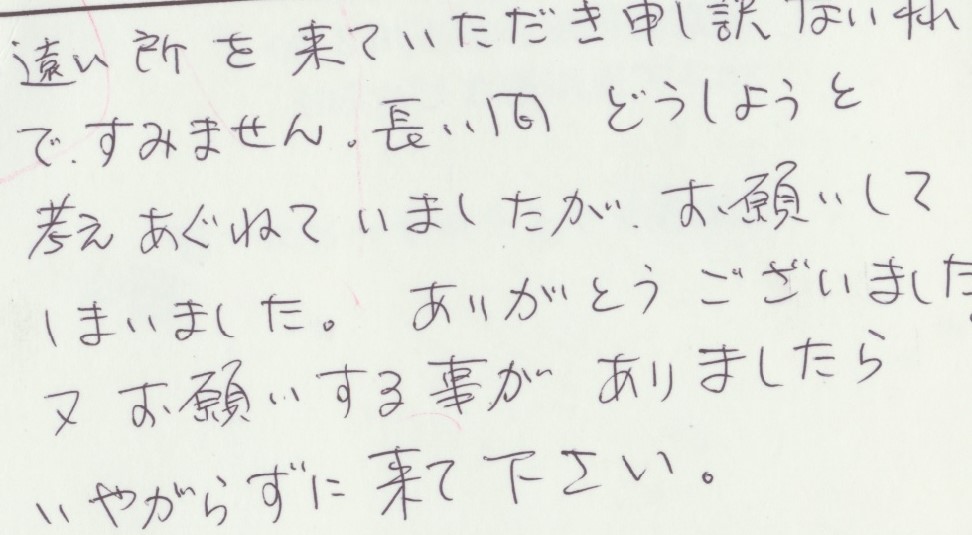 遠い所を来ていただき申し訳ない
で、すみません。長い間 どうしようと
考えあぐねていましたが、お願いして
しまいました。 ありがとうございました。
又お願いする事が ありましたら
いやがらずに来て下さい。